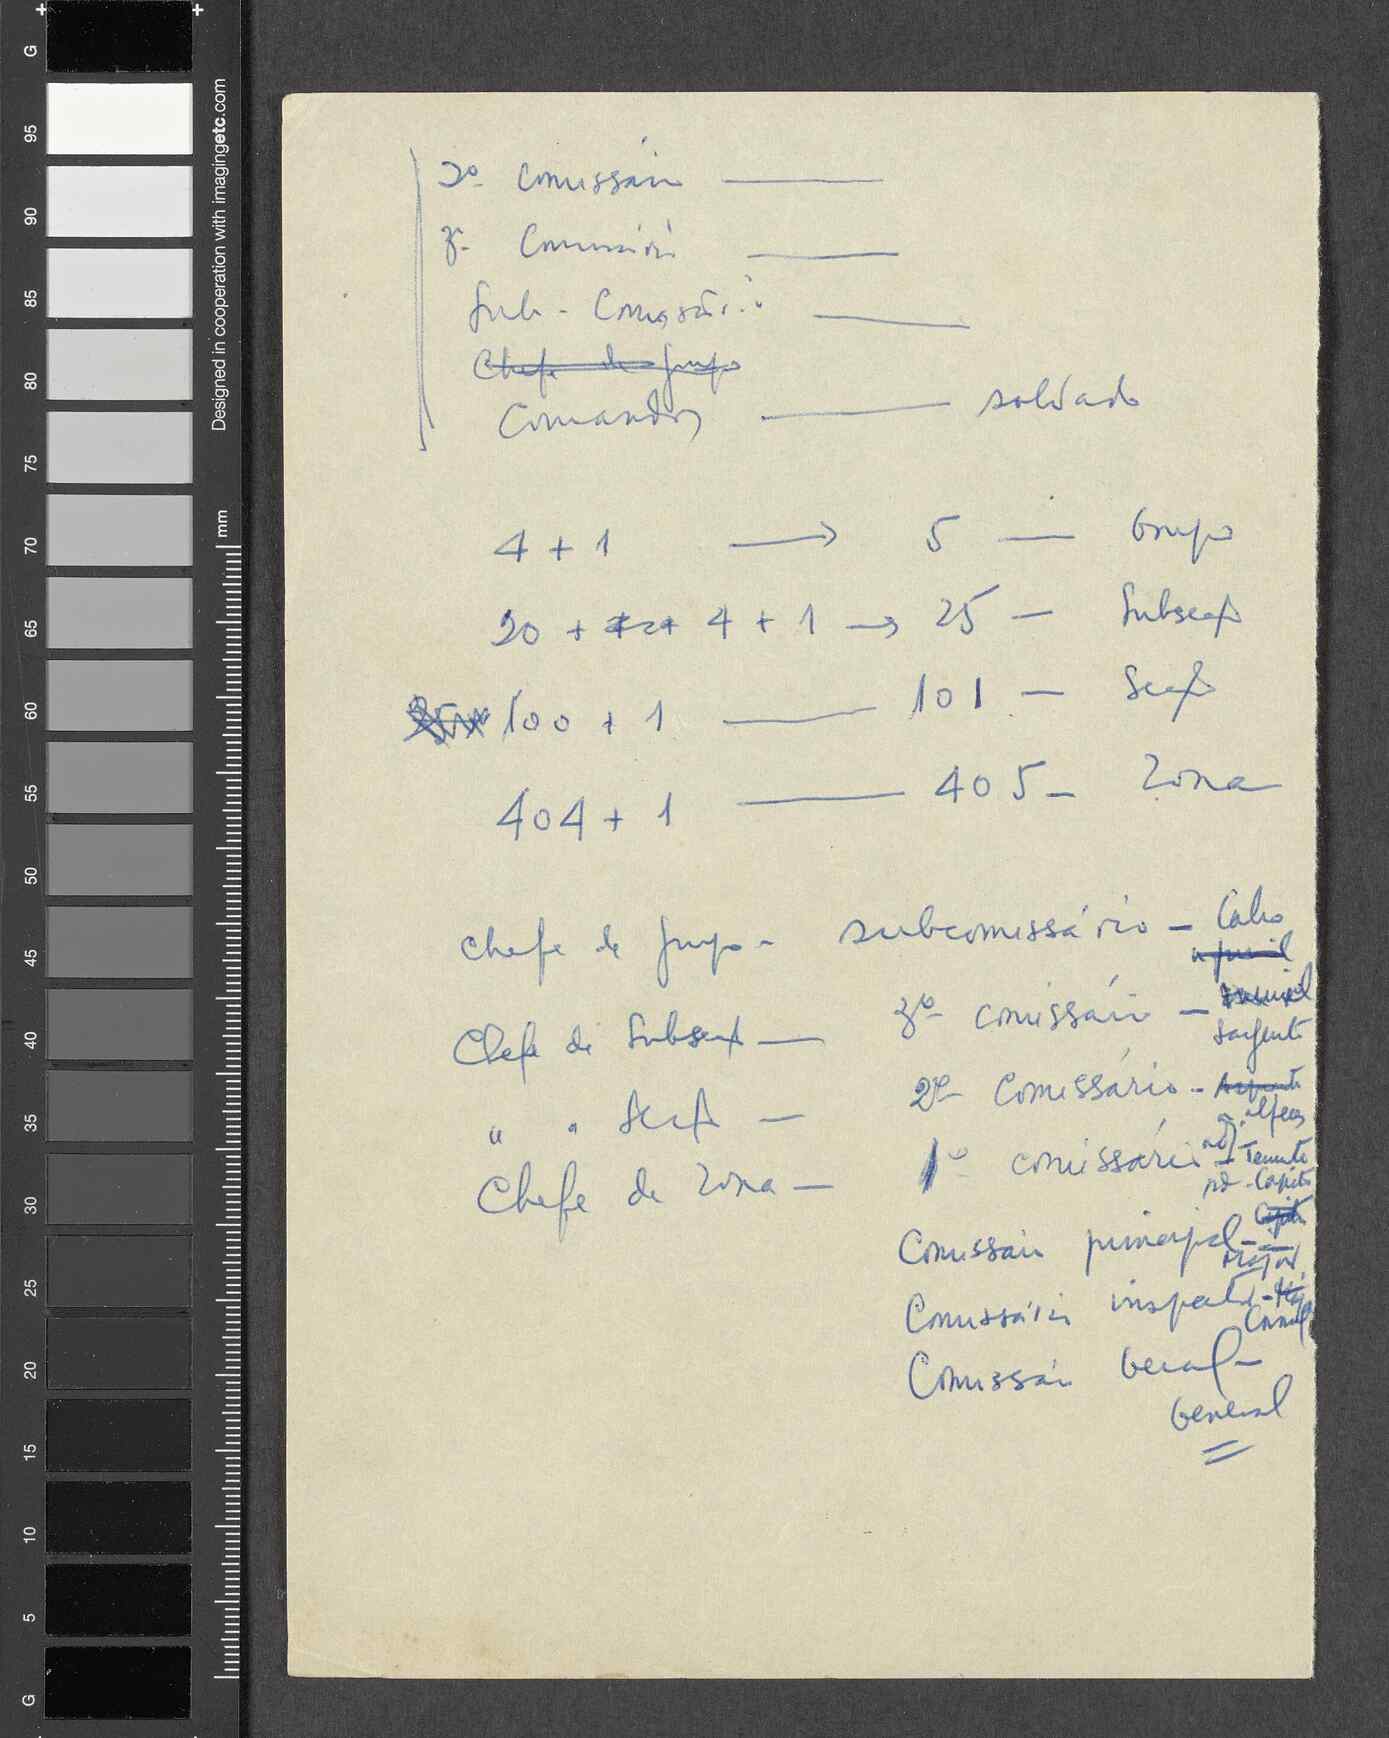 2º Comissário ———
3º Comissário ———
Sub-Comissário ———
Chefe de grupo
Comandos ——— soldado
4 + 1 → 5 — Grupo
20 + 4 + 1 → 25 — Subsecç
100 + 1 ——— 101 — Secç
404 + 1 ——— 405 — Zona
Chefe de grupo - subcomissário — Cabo
Chefe de Subsecç — 3º comissário — Sargento
" " Secç — 2º Comissário - alferes
Chefe de Zona — 1º comissário adj. — Tenente
pd - Capitão
Comissário principal — Major
Comissário inspector - Coronel
Comissário Geral —
General
G 95 90 85 80 75 70 65 60 55 50 45 40 35 30 25 20 15 10 5 G
Designed in cooperation with imagingetc.com
mm